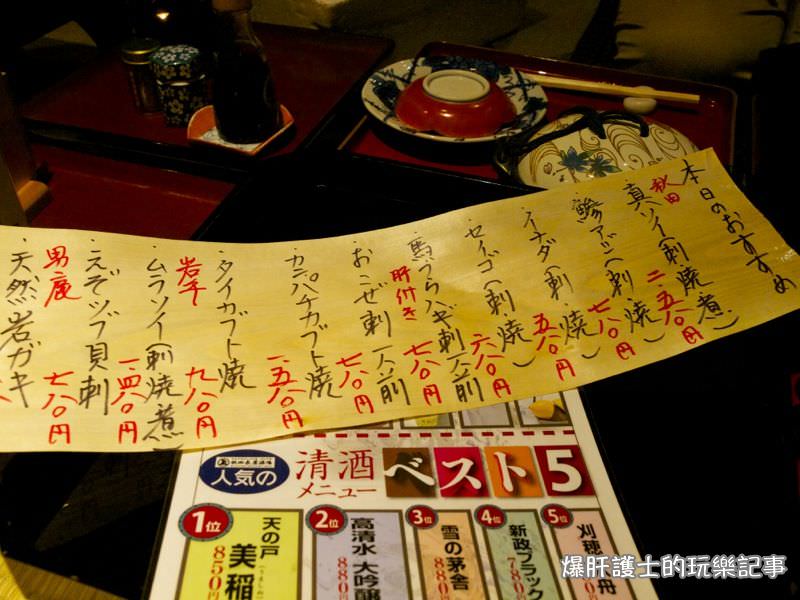 本日のおすすめ
秋田
真ソイ(刺.焼.煮)
二.五八〇円
鰺アジ(刺.焼)
七八〇円
イナダ(刺.焼)
五八〇円
セイゴ(刺.焼)
六八〇円
馬づらハギ刺一人前
肝付き
七八〇円
おこぜ刺一人前
七八〇円
カンパチカブト焼
一.五八〇円
タイカブト焼
九八〇円
岩手
ムラソイ(刺.焼.煮)
一.四八〇円
えぞツブ貝刺
七八〇円
男鹿
天然岩ガキ
人気の
清酒
メニュー
ベスト5
1位
天の戸
美稲
850円
2位
高清水 大吟醸
880
3位
雪の茅舎
880
4位
新政ブラック
780
5位
刈穂
舟
爆肝護士的玩樂記事